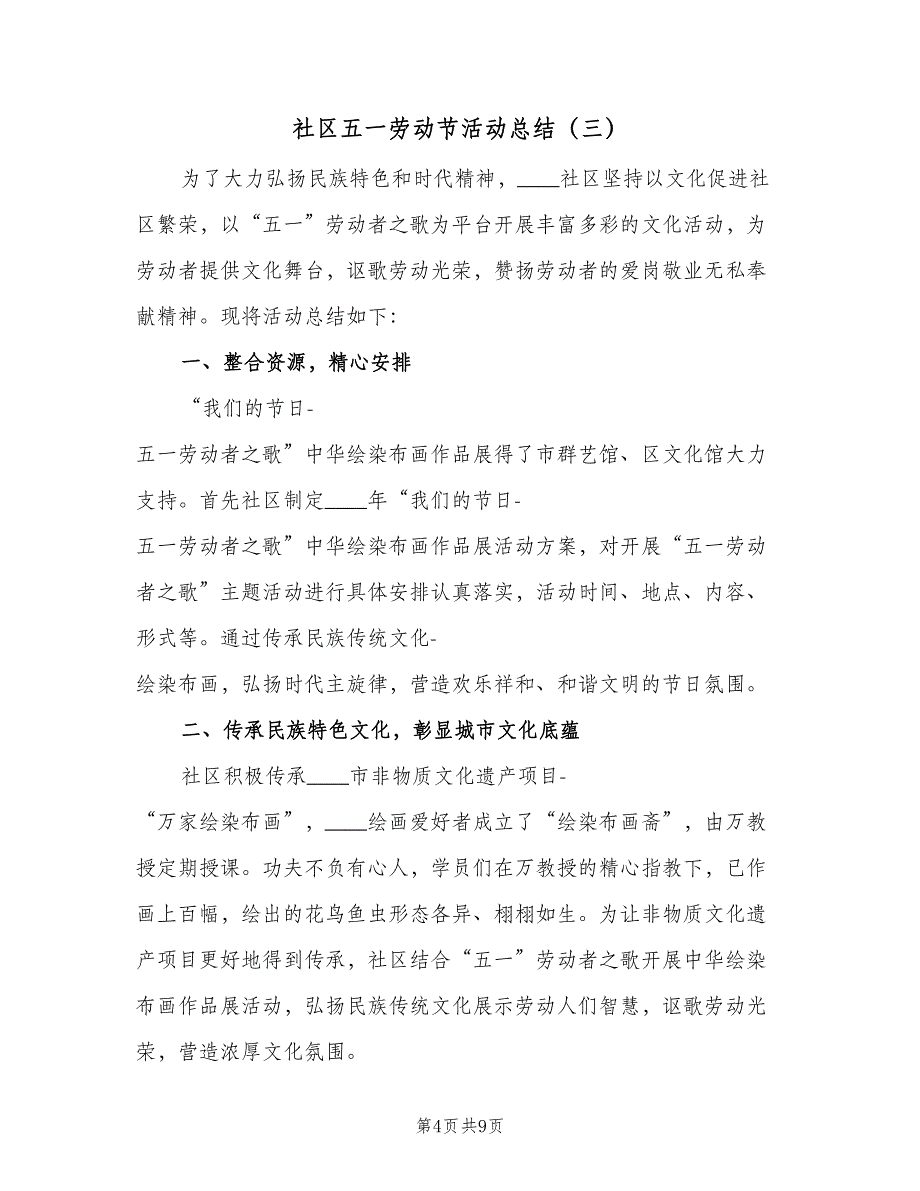 社区五一劳动节活动总结（三）
为了大力弘扬民族特色和时代精神，____社区坚持以文化促进社
区繁荣，以“五一”劳动者之歌为平台开展丰富多彩的文化活动，为
劳动者提供文化舞台，讴歌劳动光荣，赞扬劳动者的爱岗敬业无私奉
献精神。现将活动总结如下：
一、整合资源，精心安排
“我们的节日-
五一劳动者之歌”中华绘染布画作品展得了市群艺馆、区文化馆大力
支持。首先社区制定____年“我们的节日-
五一劳动者之歌”中华绘染布画作品展活动方案，对开展“五一劳动
者之歌”主题活动进行具体安排认真落实，活动时间、地点、内容、
形式等。通过传承民族传统文化-
绘染布画，弘扬时代主旋律，营造欢乐祥和、和谐文明的节日氛围。
二、传承民族特色文化，彰显城市文化底蕴
社区积极传承____市非物质文化遗产项目-
“万家绘染布画”，____绘画爱好者成立了“绘染布画斋”，由万教
授定期授课。功夫不负有心人，学员们在万教授的精心指教下，已作
画上百幅，绘出的花鸟鱼虫形态各异、栩栩如生。为让非物质文化遗
产项目更好地得到传承，社区结合“五一”劳动者之歌开展中华绘染
布画作品展活动，弘扬民族传统文化展示劳动人们智慧，讴歌劳动光
荣，营造浓厚文化氛围。
第4页 共9页